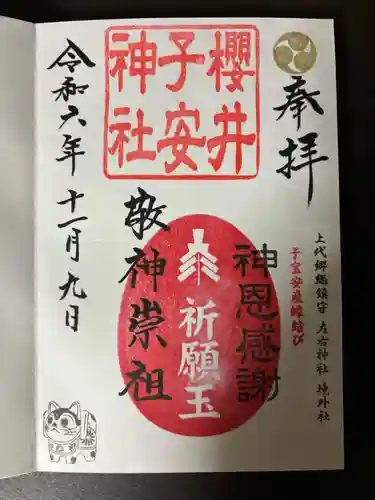 奉拝
上代郷總鎮守 左右神社 境外社
子宝安産縁結び
櫻井
子安
神社
神恩感謝
祈願玉
敬神崇祖
令和六年十一月九日